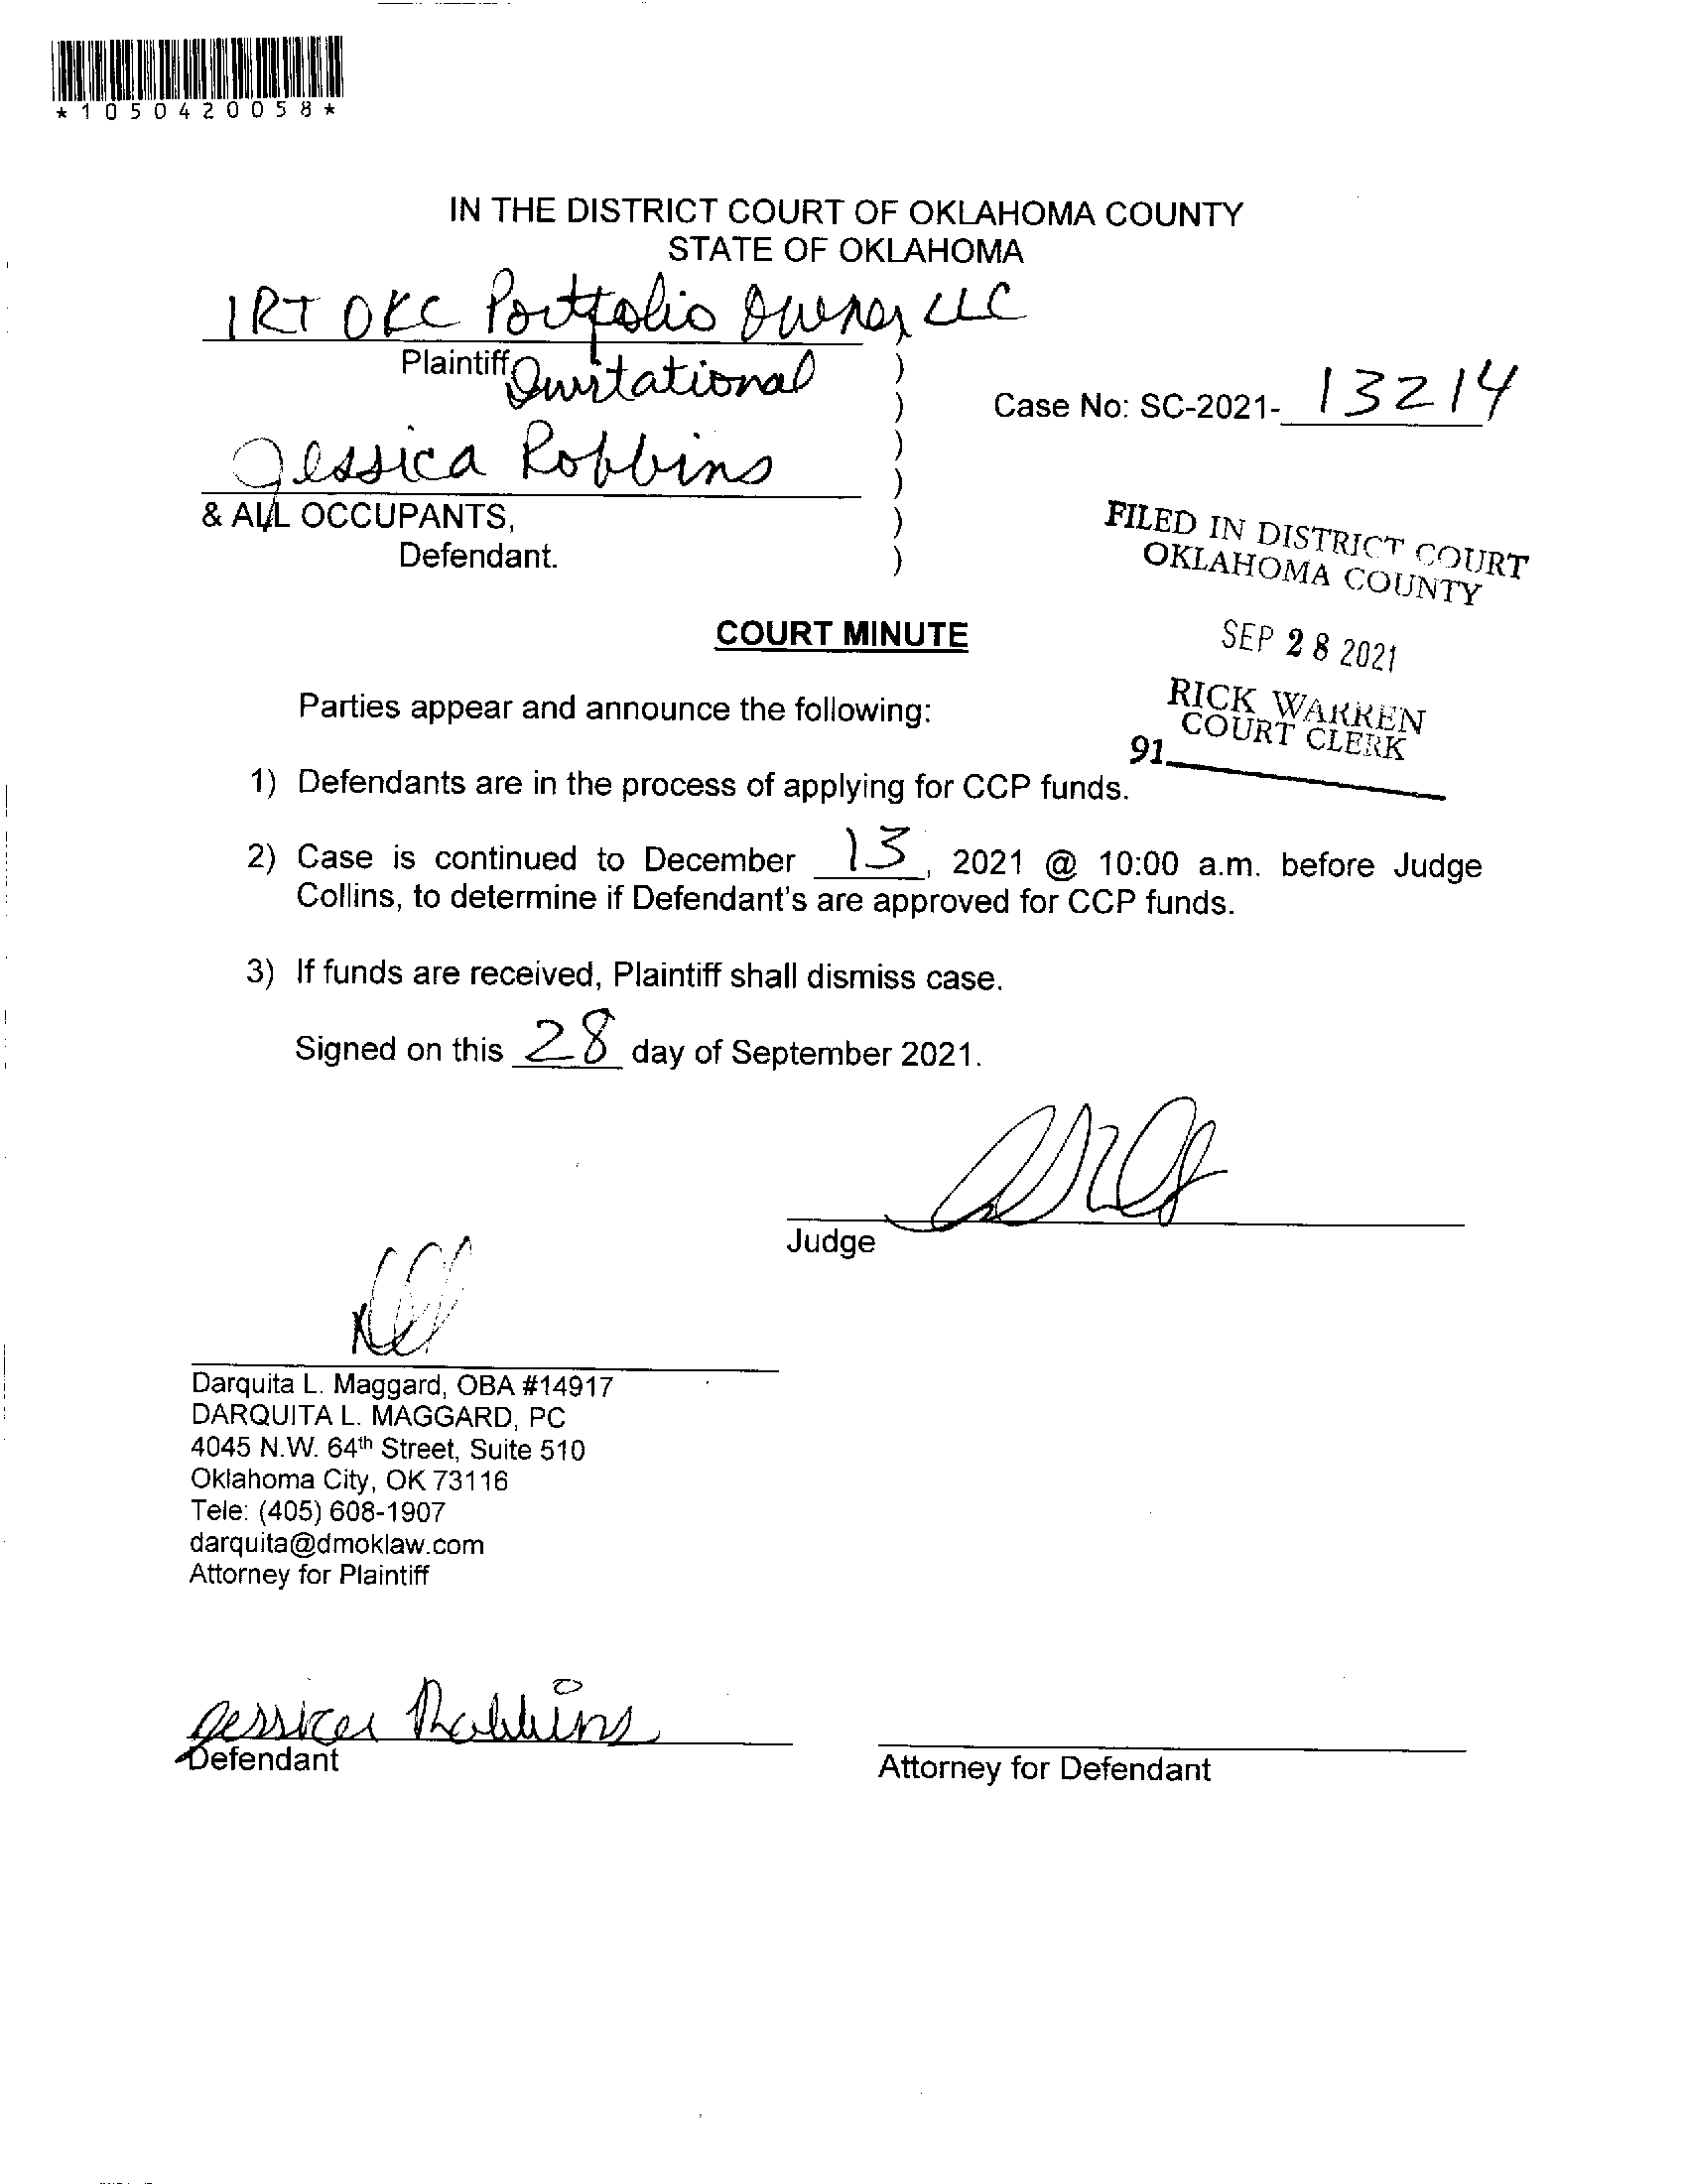 *1050420058*
IN THE DISTRICT COURT OF OKLAHOMA COUNTY
STATE OF OKLAHOMA
IRT OKC Portfolio Owner, LLC
Plaintiff Invitational
Case No: SC-2021- 13214
Jessica Robbins
& ALL OCCUPANTS,
Defendant.
)
)
)
)
)
)
FILED IN DISTRICT COURT
OKLAHOMA COUNTY
SEP 28 2021
RICK WARREN
COURT CLERK
91
COURT MINUTE
Parties appear and announce the following:
1) Defendants are in the process of applying for CCP funds.
2) Case is continued to December 13, 2021 @ 10:00 a.m. before Judge
Collins, to determine if Defendant's are approved for CCP funds.
3) If funds are received, Plaintiff shall dismiss case.
Signed on this 28 day of September 2021.
Judge
Darquita L. Maggard, OBA #14917
DARQUITA L. MAGGARD, PC
4045 N.W. 64th Street, Suite 510
Oklahoma City, OK 73116
Tele: (405) 608-1907
darquita@dmoklaw.com
Attorney for Plaintiff
Jessica Robbins
Defendant
Attorney for Defendant